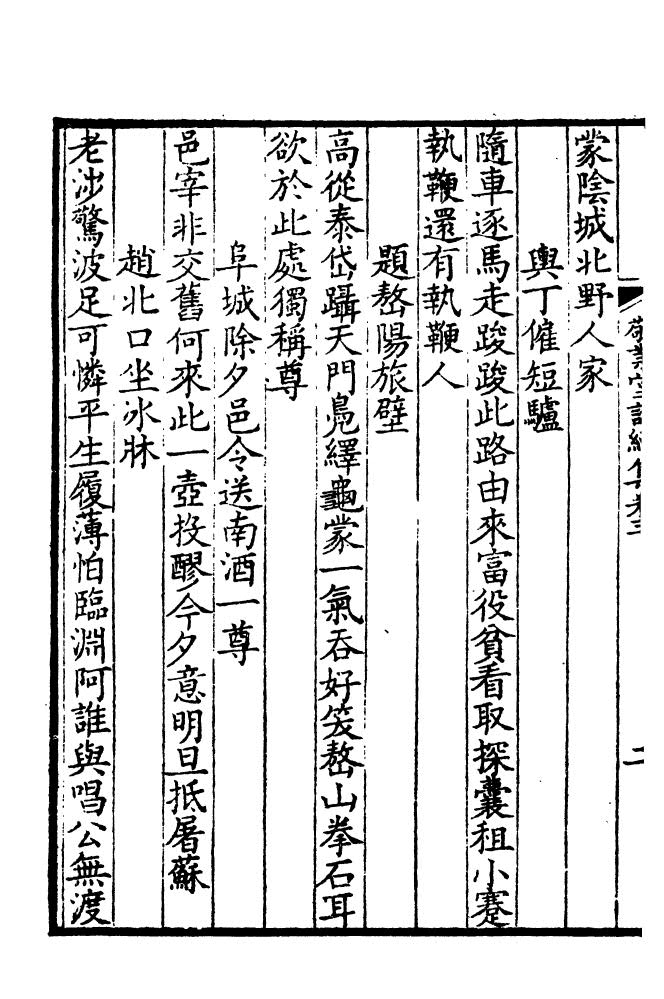 敬業堂詩續集卷三
二
蒙陰城北野人家
輿丁僱短驢
隨車逐馬走踆踆此路由來富役貧看取探囊租小蹇
執鞭還有執鞭人
題嶅陽旅壁
高從泰岱躡天門鳧繹龜蒙一氣吞好笑嶅山拳石耳
欲於此處獨稱尊
阜城除夕邑令送南酒一尊
邑宰非交舊何來此一壺投醪今夕意明旦抵屠蘇
趙北口坐冰牀
老涉驚波足可憐平生履薄怕臨淵阿誰與唱公無渡